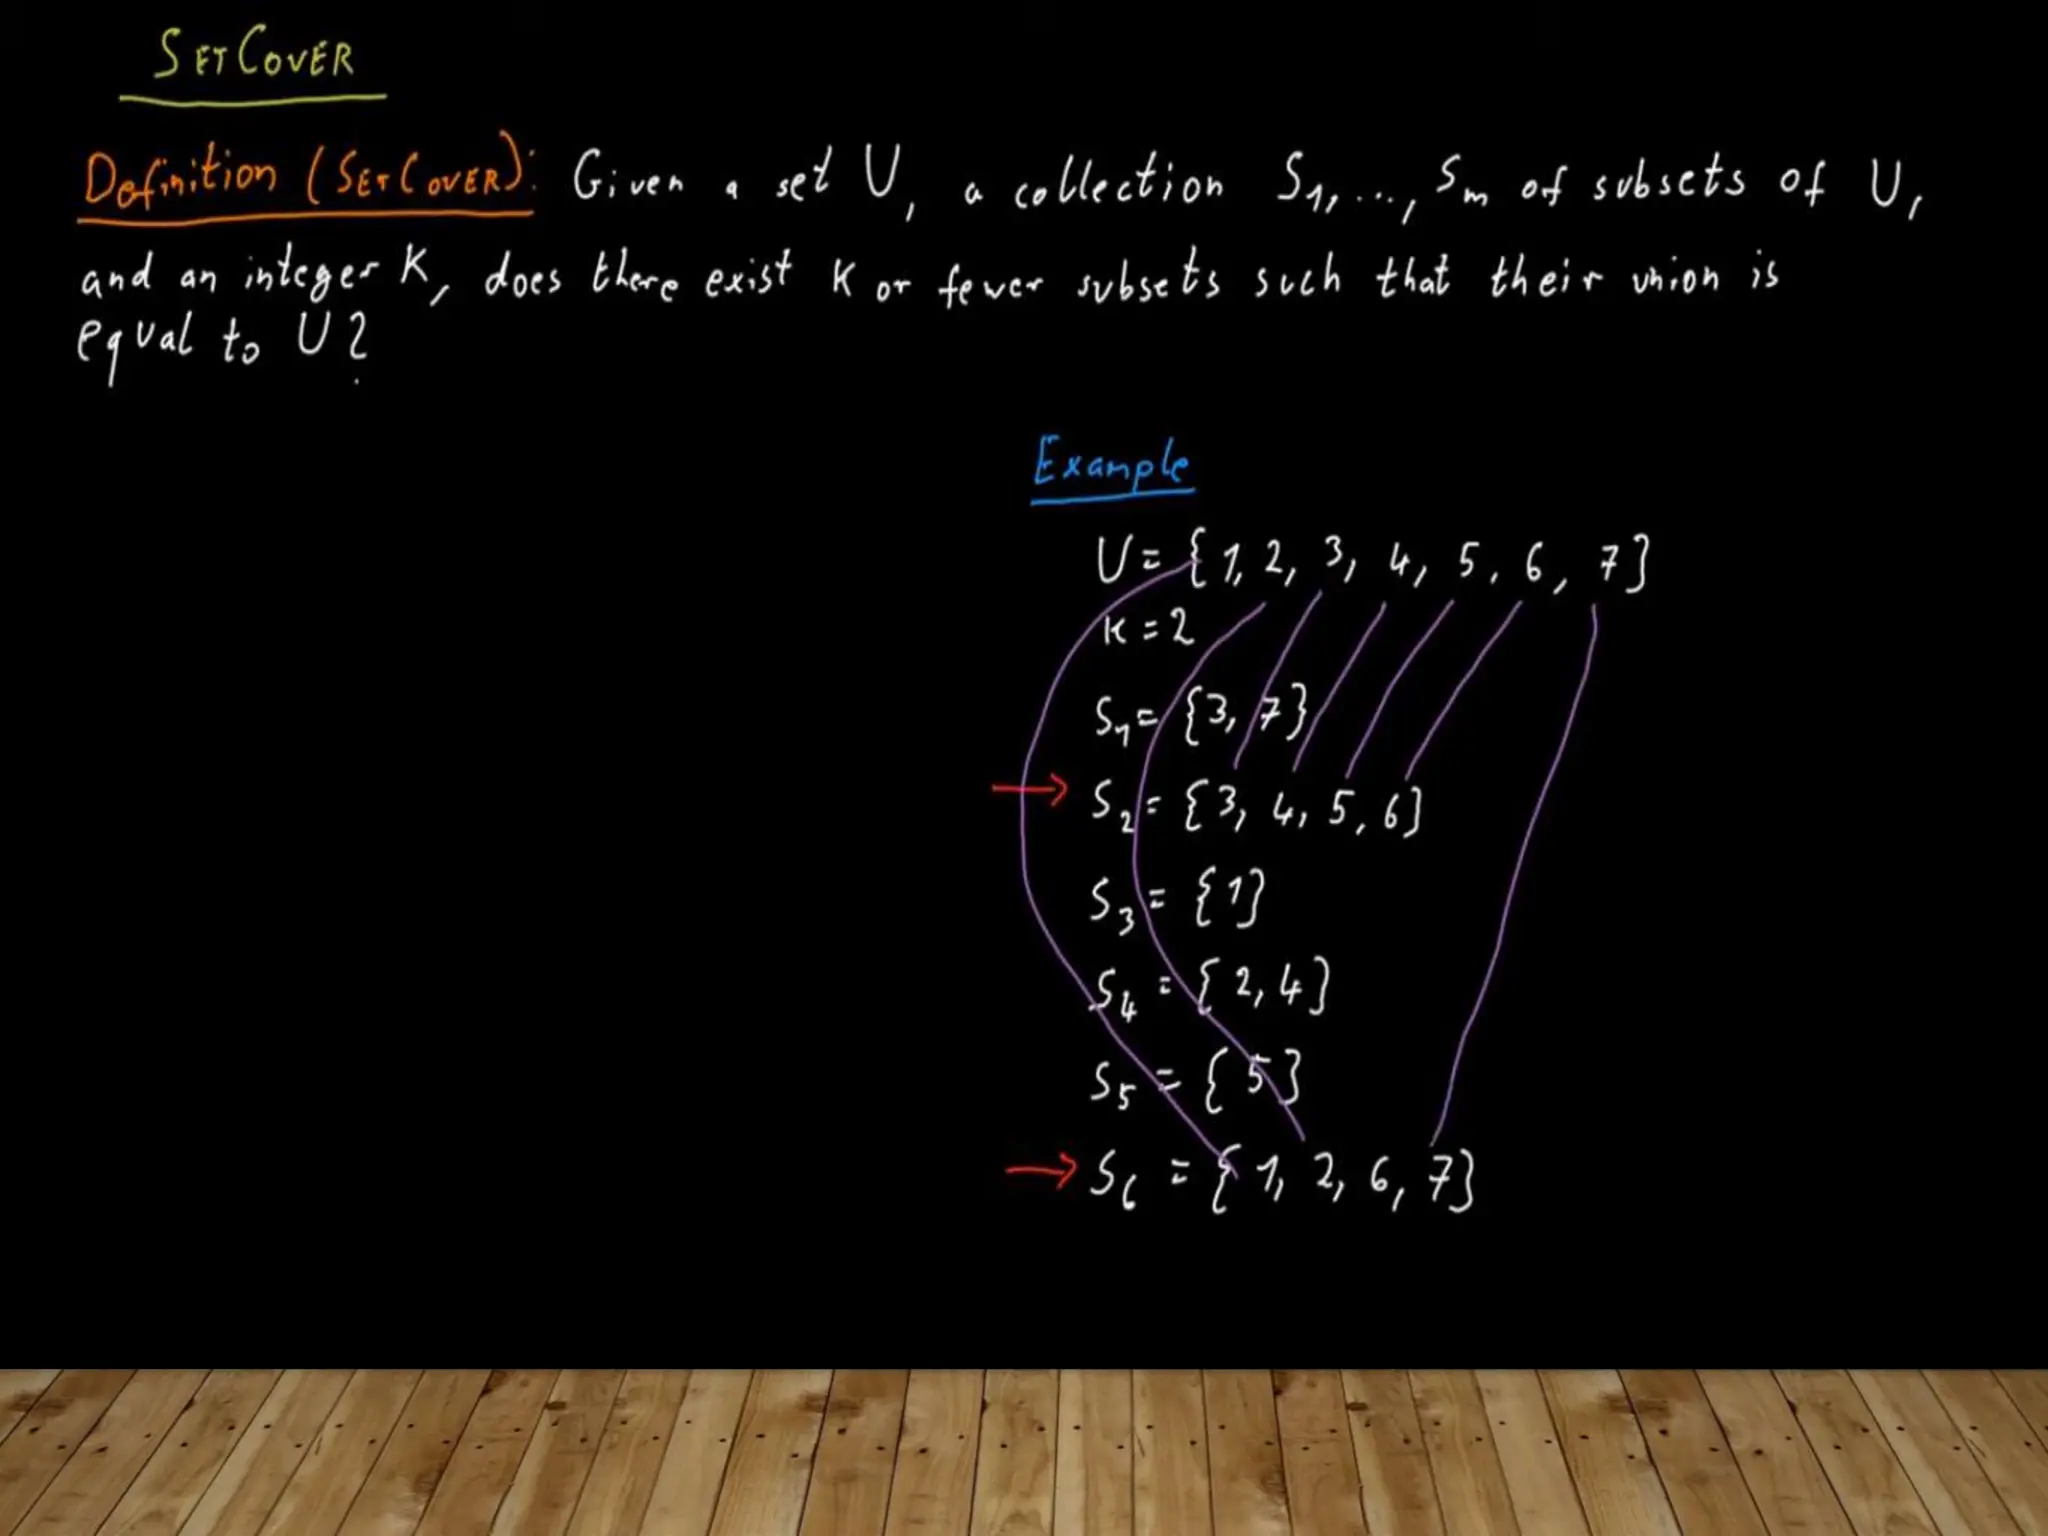 SETCOVER
Definition (SETCOVER): Given a set U, a collection S₁, ..., Sm of subsets of U,
and an integer K, does there exist K or fewer subsets such that their union is
equal to U?
Example
U = {1, 2, 3, 4, 5, 6, 7}
K = 2
S₁ = {3, 7}
→ S₂ = {3, 4, 5, 6}
S₃ = {1}
S₄ = {2, 4}
S₅ = {5}
→ S₆ = {1, 2, 6, 7}